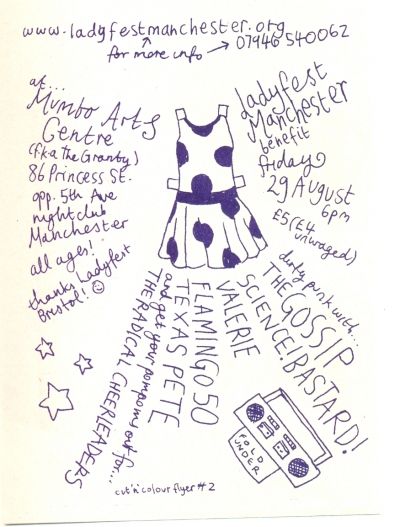 www.ladyfestmanchester.org
for more info → 07946 540062
at...
Mumbo Arts
Centre
(f.k.a the Granby)
86 Princess St.
opp. 5th Ave
nightclub
Manchester
all ages!
thanks Ladyfest
Bristol! ☺
ladyfest
Manchester
benefit
friday
29 August
6pm
£5 (£4
unwaged)
dirty pink with...
THE GOSSIP
SCIENCE! BASTARD!
VALERIE
FLAMINGO 50
TEXAS PETE
and get your pompoms out for...
THE RADICAL CHEERLEADERS
FOLD
UNDER
cut'n'colour flyer #2